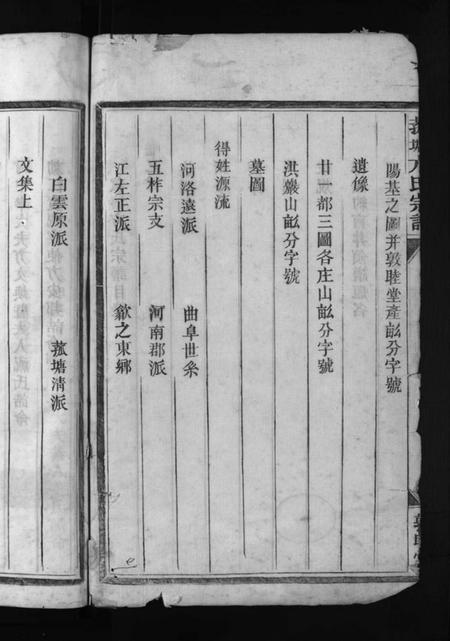 菰塘方氏宗譜
陽基之圖并敦睦堂產畝分字號
遺像
廿都三圖各庄山畝分字號
洪巖山畝分字號
墓圖
得姓源流
河洛遠派 曲阜世系
五柞宗支 河南郡派
江左正派 歙之東鄉
白雲原派 菰塘清派
文集上